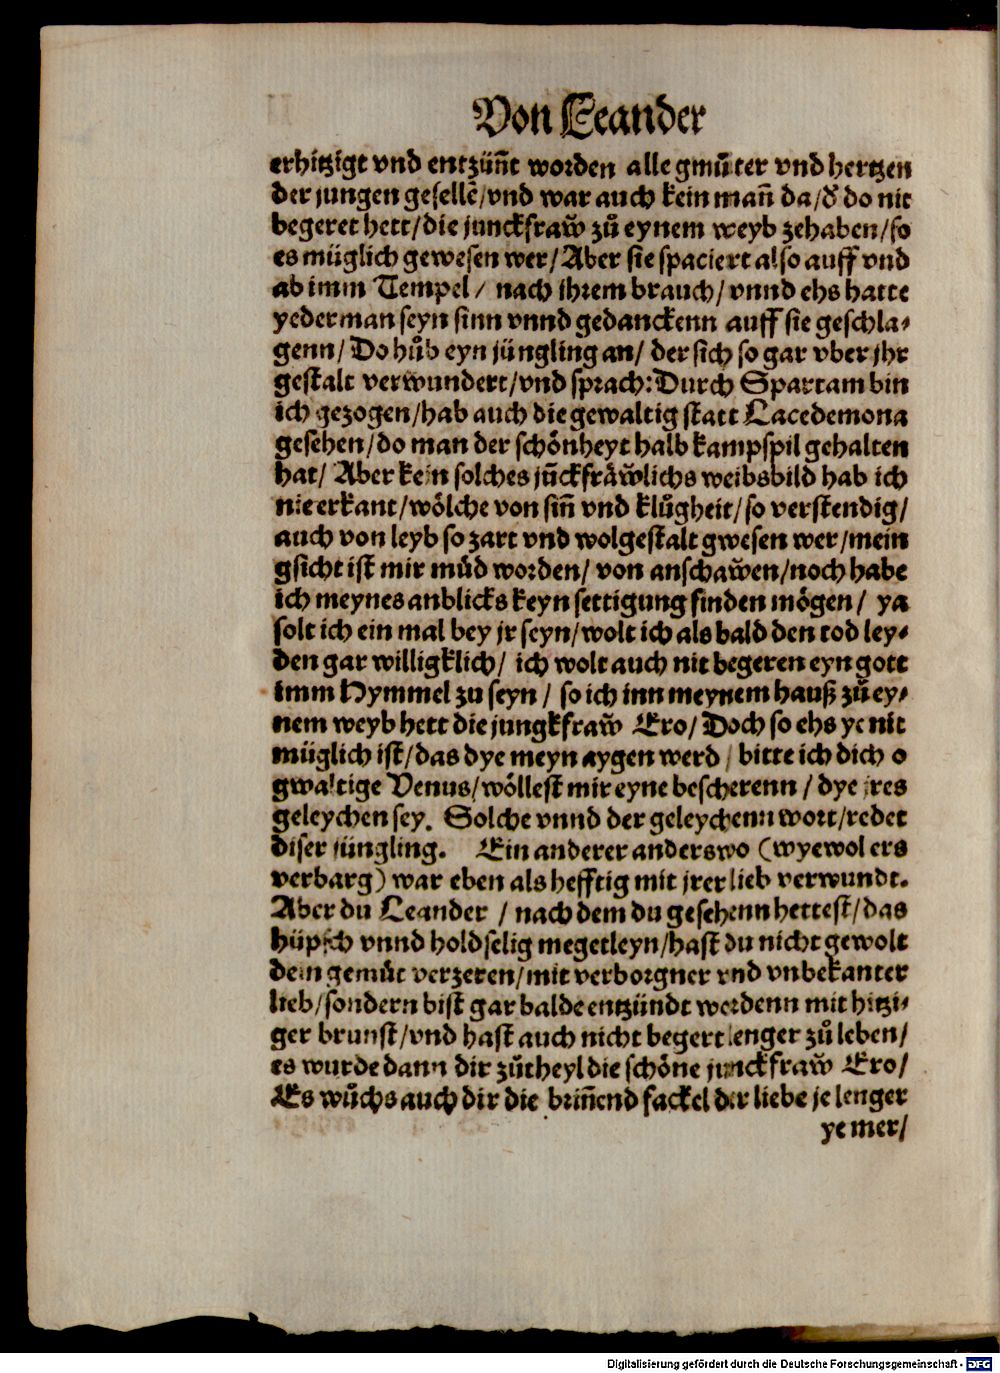 Von Leander
erhitzigt vnd entzün̄t worden alle gmuͤter vnd hertzen
der jungen gesellē/vnd war auch kein man̄ da/d' do nit
begeret hett/die junckfraw̆ zuͦ eynem weyb zehaben/so
es müglich gewesen wer/Aber sie spaciert also auff vnd
ab imm Tempel/ nach ihrem brauch/ vnnd ehs hatte
yederman seyn sinn vnnd gedanckenn auff sie geschla⸗
genn/ Do huͦb eyn jüngling an/ der sich so gar vber jhr
gestalt verwundert/vnd sprach:Durch Spartam bin
ich gezogen/hab auch die gewaltig statt Lacedemona
gesehen/do man der schoͤnheyt halb kampspil gehalten
hat/ Aber kein solches jūckfraͤw̆lichs weibsbild hab ich
nie erkant/woͤlche von sin̄ vnd kluͦgheit/so verstendig/
auch von leyb so zart vnd wolgestalt gwesen wer/mein
gsicht ist mir muͤd worden/ von anschaw̆en/noch habe
ich meynes anblicks keyn settigung finden moͤgen/ ya
solt ich ein mal bey jr seyn/wolt ich als bald den tod ley⸗
den gar willigklich/ ich wolt auch nit begeren eyn gott
imm Hymmel zu seyn/ so ich inn meynem hauß zuͦ ey⸗
nem weyb hett die jungkfraw̆ Ero/ Doch so ehs ye nit
müglich ist/das dye meyn aygen werd/ bitte ich dich o
gwaltige Venus/woͤllest mir eyne bescherenn/ dye jres
geleychen sey. Solche vnnd der geleychenn wort/redet
diser jüngling. Ein anderer anderswo (wyewol ers
verbarg) war eben als hefftig mit jrer lieb verwundt.
Aber du Leander / nach dem du gesehenn hettest/das
hüpsch vnnd holdselig megetleyn/hast du nicht gewolt
dein gemuͤt verzeren/mit verborgner vnd vnbekanter
lieb/sondern bist gar balde entzündt wordenn mit hitzi⸗
ger brunst/vnd hast auch nicht begert lenger zuͦ leben/
es wurde dann dir zuͦtheyl die schoͤne junckfraw̆ Ero/
Es wuͦchs auch dir die brin̄end fackel der liebe je lenger
ye mer/
Digitalisierung gefördert durch die Deutsche Forschungsgemeinschaft - DFG